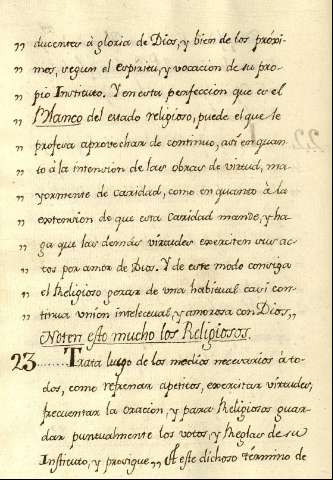 „ ducentes à gloria de Dios, y bien de los próxi-
„ mos, segun el espíritu, y vocacion de su pro-
„ pio Instituto. Y en esta perfeccion que es el
„ Blanco del estado religioso, puede el que le
„ profesa aprovechar de continuo, asi en quan-
„ to á la intension de las obras de virtud, ma-
„ yormente de caridad, como en quanto à la
„ extension de que esta Caridad mande, y ha-
„ ga que las demás virtudes exerciten sus ac-
„ tos por amor de Dios. Y de este modo consiga
„ el Religioso gozar de una habitual casi con-
„ tinua union intelectual, y amorosa con Dios„
Noten esto mucho los Religiosos.
23......Trata luego de los medios necesarios à to-
dos, como refrenar apetitos, exercitar virtudes,
frecuentar la oracion, y para Religiosos guar-
dar puntualmente los votos, y Reglas de su
Instituto, y prosigue„ A este dichoso término de